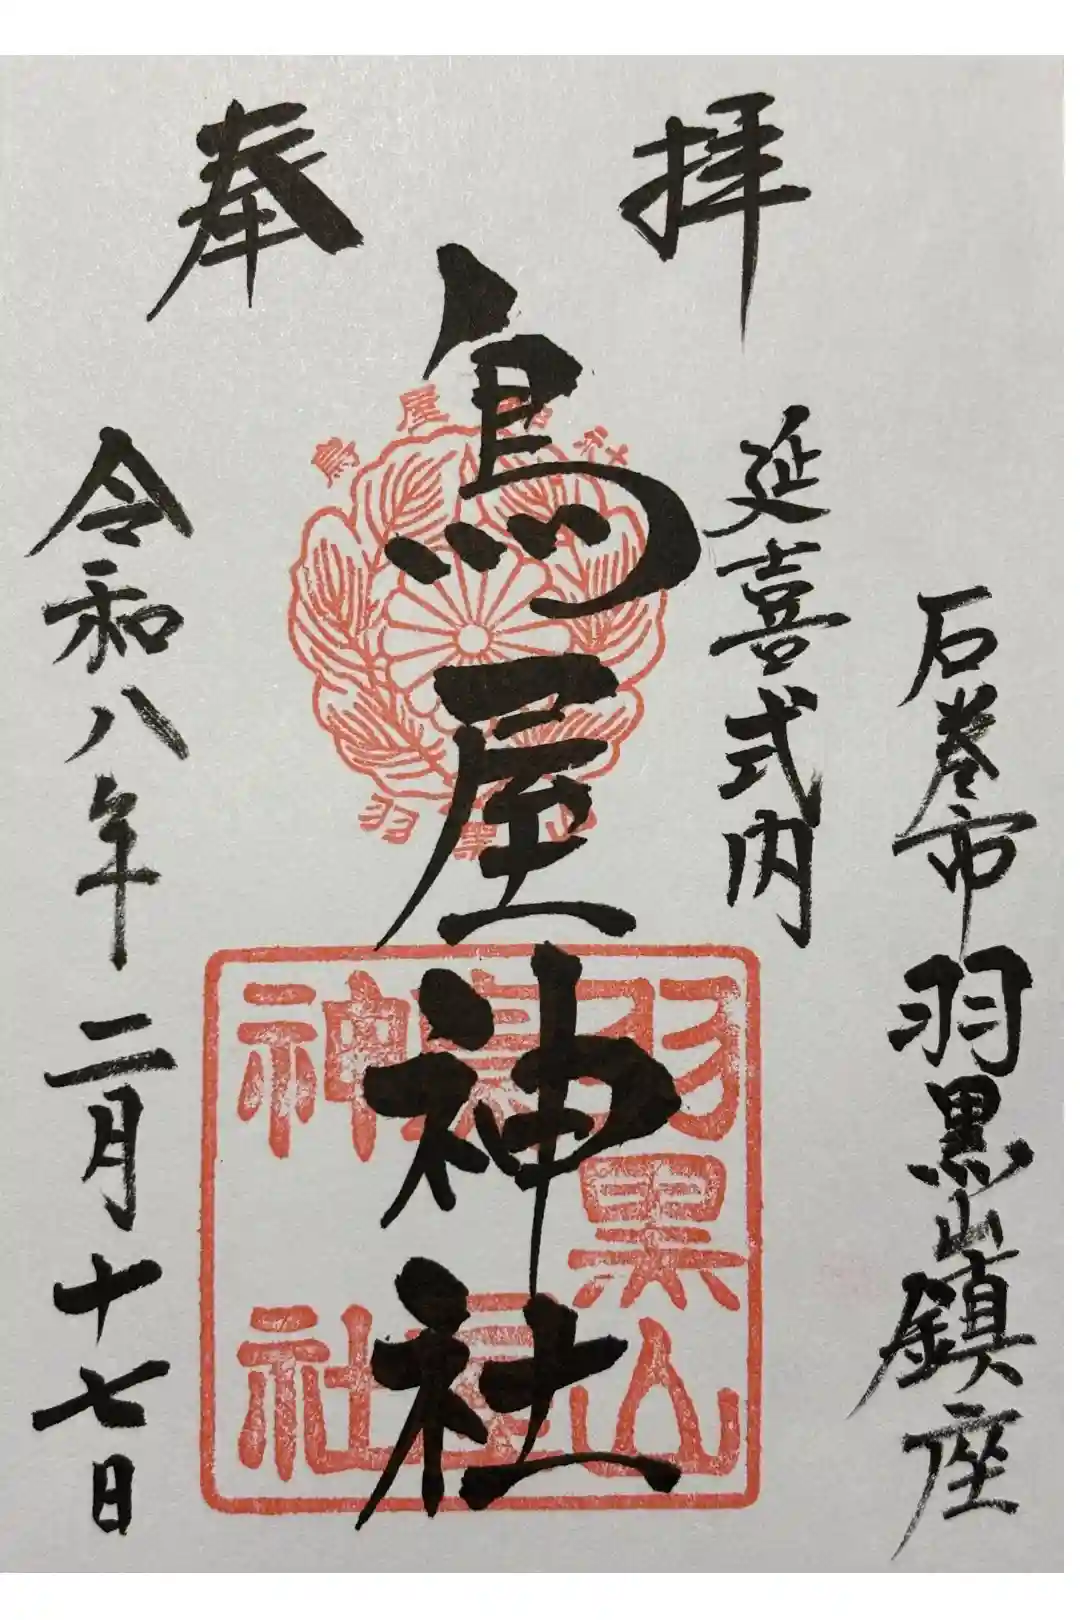 奉拝
石巻市羽黒山鎮座
延喜式内
鳥屋神社
令和八年二月十七日
鳥屋神社
羽黒山
羽黒山
鳥屋
神社